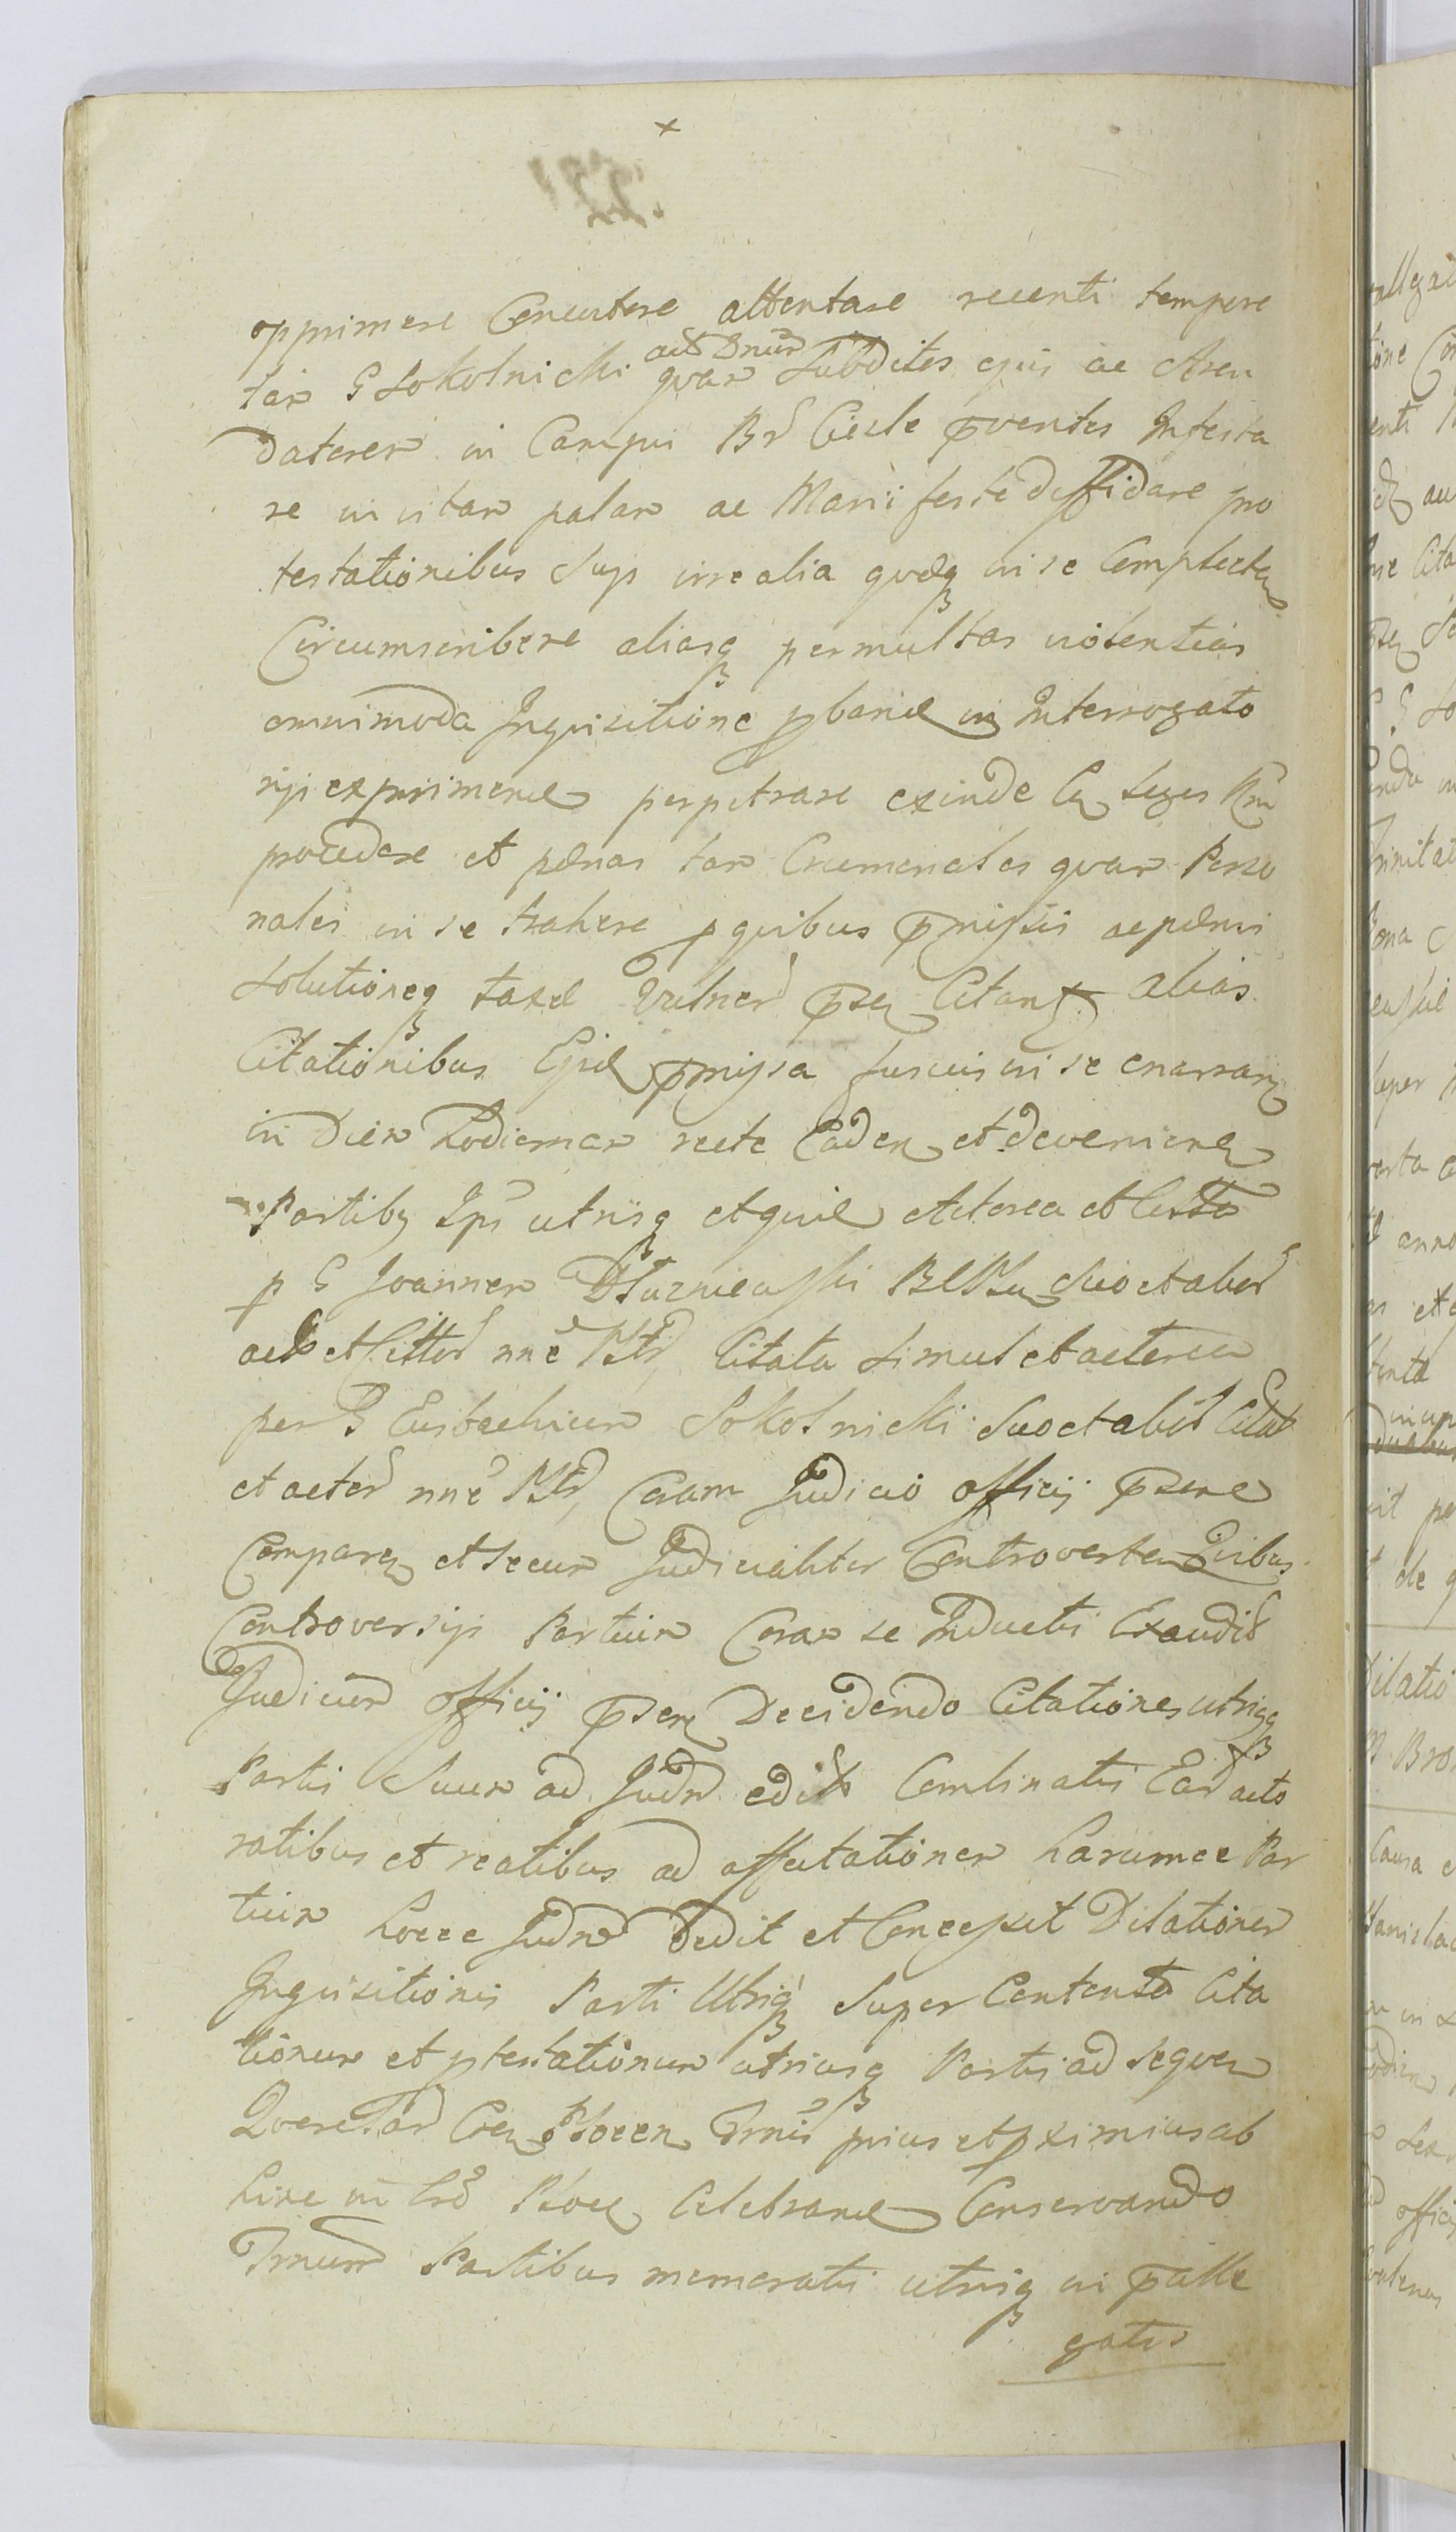 opprimere Concutere attentare recenti tempore
tam G Sokolnicki quam Subditos ejus ac Aren
datorem in Campis Bd Ciesle pventes Infesta
re in vitam palam ac Manifeste diffidare pro
testationibus Suis irrealia quaeq in se Complecten
Circumscribere aliasq permultas violentias
omnimoda Inquisitione pband in Interrogato
rijs exprimend perpetrare exinde Cu leges Rni
procedere et paenas tam Criminales quam Perso
nales in se trahere p quibus pmissis ac paenis
Solutioneq taxae Vulner psen Citan alias
Citationibus Ejusd pmissa fusius in se enarran
in Diem hodiernam recte Caden et devenien
Partibus Ips utrisq et quid et actorea et Citta
p G Joannem Dłuzniewski suo et alior
act et Cittor nne Mtd Citata Simul et actorea
per G Eustachium Sokolnicki Suo et alior Citat
et actor nne Mtd Coram Judicio officij psente
Comparen et secum Judicialiter Controverten Quibus
Controversijs Partium Coram se Inductis Exaudit
Judicium officij psens Decidendo Citationes utriusq
Partis Suum ad Judm edit Combinatis Ear acto
ratibus et reatibus ad affectationem harumce Par
tium hocce Judm Dedit et Concessit Dilationem
Inquisitionis Parti Utriq Super Contenta Cita
tionum et ptestationum utriusq Partis ad sequen
Querelar Coen Tmis prius et pximius ab
hinc in Cro Celebrand Conservando
Tmum Partibus memoratis utrisq in palle
gatis